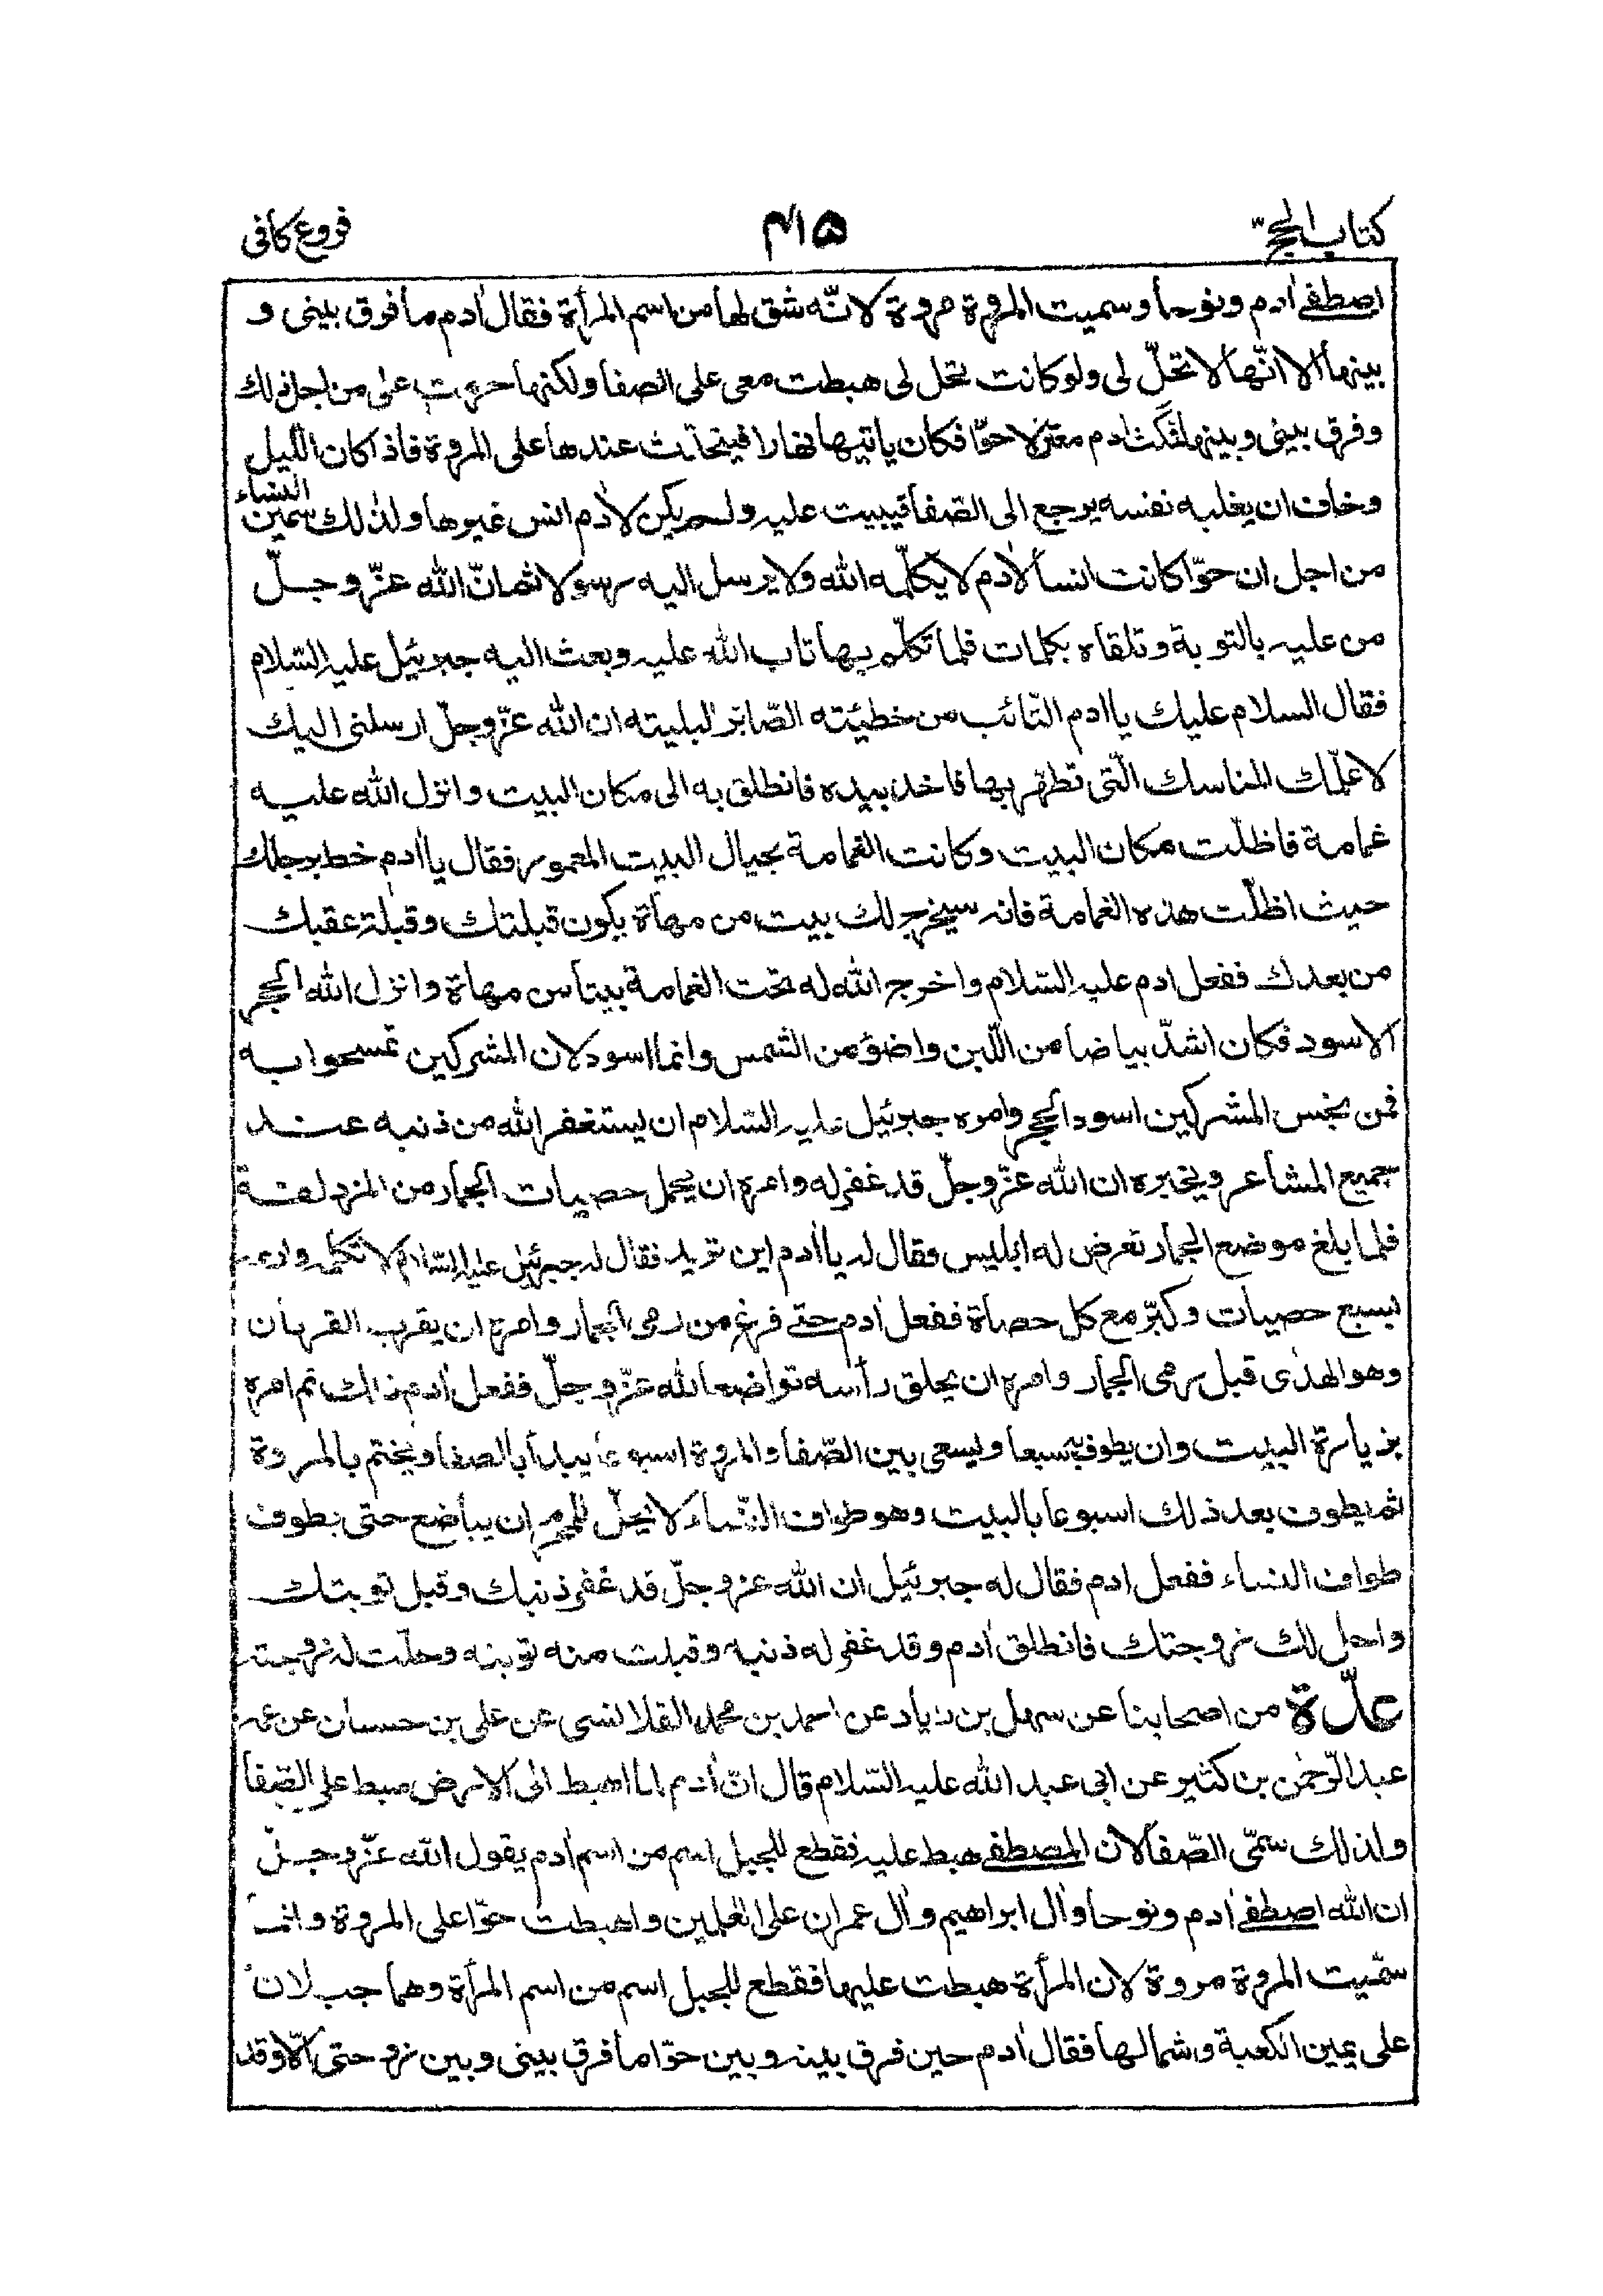 كتاب الحجّ ۴۱۵ فروع كافى
اصطفى اٰدم ونوحا وسميت المروة مروة لانّه شق لها من اسم المرأة فقال اٰدم ما فرق بينى و
بينها الا انّها لا تحلّ لى ولو كانت تحل لى هبطت معى على الصفا ولكنها حرمت على من اجل ذلك
وفرق بينى وبينها فمكث ادم معتزلا حوّا فكان ياتيها نهارا فيتحدّث عندها على المروة فاذا كان اللّيل
وخاف ان يغلبه نفسه يرجع الى الصّفا فيبيت عليه ولم يكن لاٰدم انس غيرها ولذلك سمين النساء
من اجل ان حوّا كانت انسا لاٰدم لا يكلّمه الله ولا يرسل اليه رسولا ثم انّ الله عزّ وجلّ
من عليه بالتوبة وتلقاه بكلمات فلما تكلّم بها تاب الله عليه وبعث اليه جبرئيل عليه السّلام
فقال السلام عليك يا ادم التّائب من خطيئته الصّابر لبليته ان الله عزّ وجلّ ارسلنى اليك
لاعلّمك المناسك الّتى تطهر بها فاخذ بيده فانطلق به الى مكان البيت وانزل الله عليه
غمامة فاظلّت مكان البيت وكانت الغمامة بحيال البيت المعمور فقال يا اٰدم خط برجلك
حيث اظلّت هذه الغمامة فانه سيخرج لك بيت من مهاة يكون قبلتك وقبلة عقبك
من بعدك ففعل ادم عليه السّلام واخرج الله له تحت الغمامة بيتا من مهاة وانزل الله الحجر
الاسود فكان اشدّ بياضا من اللّبن واضوٴ من الشمس وانما اسود لان المشركين تمسحوا به
فمن نجس المشركين اسود الحجر وامره جبرئيل عليه السّلام ان يستغفر الله من ذنبه عند
جميع المشاعر ويخبره ان الله عزّ وجلّ قد غفر له وامره ان يحمل حصيات الجمار من المزدلفة
فلما بلغ موضع الجمار تعرض له ابليس فقال له يا اٰدم اين تريد فقال له جبرئيل عليه السّلام لا تكلمه وارمه
بسبع حصيات وكبّر مع كل حصاة ففعل اٰدم حتى فرغ من رمى الجمار وامره ان يقرب القربان
وهو الهدى قبل رمى الجمار وامره ان يحلق رأسه تواضعا لله عزّ وجلّ ففعل اٰدم ذلك ثم امره
بزيارة البيت وان يطوف به سبعا ويسعى بين الصّفا والمروة اسبوعا يبدأ بالصفا ويختم بالمروة
ثم يطوف بعد ذلك اسبوعا بالبيت وهو طواف النّساء لا يحلّ للمحرم ان يباضع حتى يطوف
طواف النساء ففعل ادم فقال له جبرئيل ان الله عز وجلّ قد غفر ذنبك وقبل توبتك
واحل لك زوجتك فانطلق اٰدم وقد غفر له ذنبه وقبلت منه توبته وحلّت له زوجته
عدّة من اصحابنا عن سهل بن زياد عن احمد بن محمد القلانسى عن على بن حسان عن عمه
عبد الرّحمٰن بن كثير عن ابى عبد الله عليه السّلام قال انّ اٰدم لما اهبط الى الارض هبط على الصّفا
ولذلك سمّى الصّفا لان المصطفى هبط عليه فقطع للجبل اسم من اسم اٰدم يقول الله عزّ وجلّ
ان الله اصطفى اٰدم ونوحا واٰل ابراهيم واٰل عمران على العٰلمين واهبطت حوّا على المروة وانما
سمّيت المروة مروة لان المرأة هبطت عليها فقطع للجبل اسم من اسم المرأة وهما جبلان
على يمين الكعبة وشمالها فقال اٰدم حين فرق بينه وبين حوّا ما فرق بينى وبين زوجتى الّا وقد